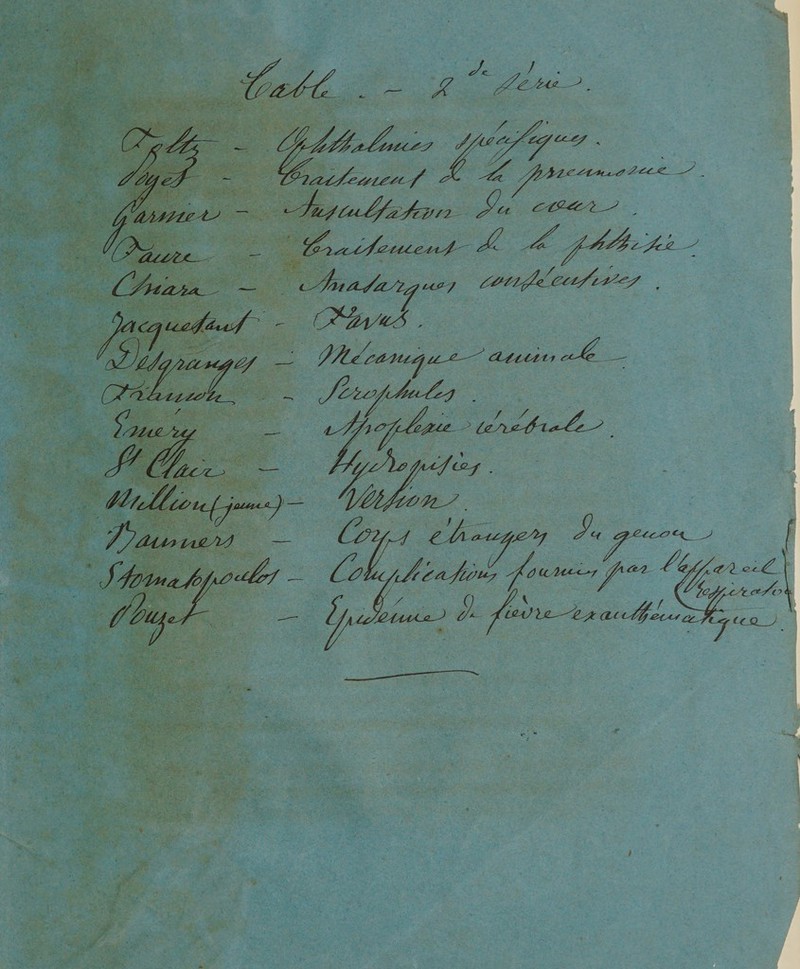 Table. - 2de Série.
Feltz - Ophthalmies spécifiques.
Poyet - Traitement de la pneumonie.
Garnier - Auscultation du cœur.
Faure - Traitement de la phthisie.
Chiara - Anasarques consécutives.
Jacquetant - Favus.
Desgranges - Mécanique animale
Framon - Scrophules.
Emery - Apoplexie cérébrale.
St Clair - Hydropisies.
Million (jeune) - Version.
Baumers - Corps étrangers du genou
Stomatopoulos - Complications fournies par l'appareil
(respiratoire
Pouzet - Epidémie de fièvre exanthématique.